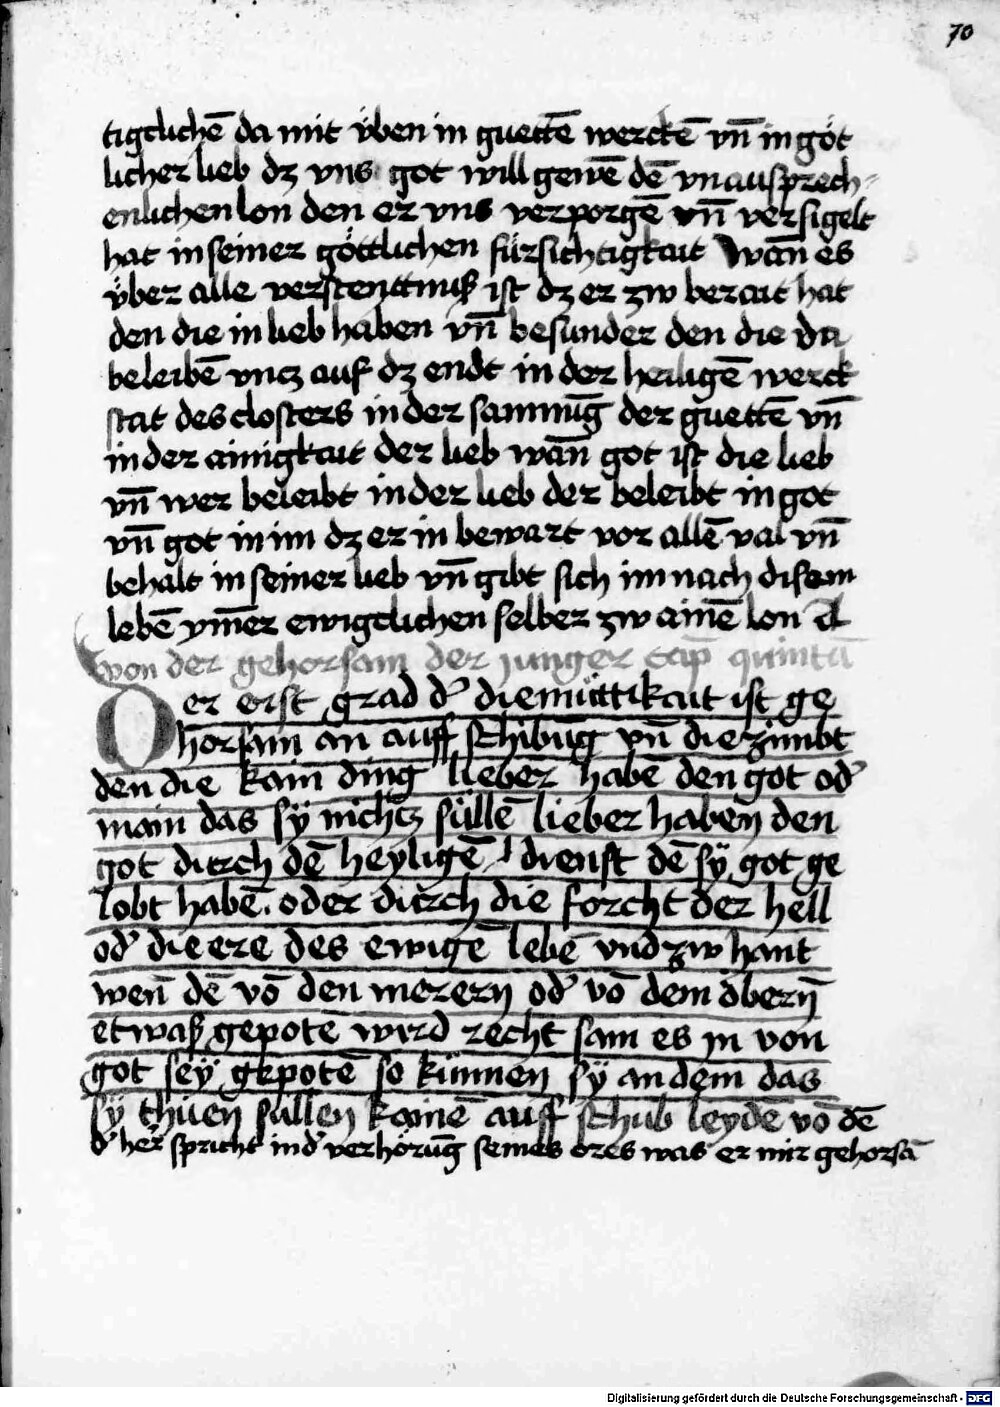 70
tigclichē da mit v̈ben in guettē werckē vn̄ in göt
licher lieb dz vns got will gewē dē vnausprech-
enlichen lon den er vns verporgē vn̄ versigelt
hat in seiner göttlichen fürsichtigkait Wan̄ es
v̈ber alle verstenttnuß ist dz er zw berait hat
den die in lieb haben vn̄ besunder den die da
beleibē vncz auf dz endt in der heiligē werck
stat des closters in der samnūg der guettē vn̄
in der ainigkait der lieb wan̄ got ist die lieb
vn̄ wer beleibt in der lieb der beleibt in got
vn̄ got in im dz er in bewart vor allē val vn̄
behalt in seiner lieb vn̄ gibt sich im nach disem
lebē ym̄er ewigclichen selber zw ainē lon
Von der gehorsam der junger cap̄ quintū
Der erst grad d' diemüttikait ist ge
horsam an auff schibūg vn̄ die zimbt
den die kain ding lieber habē den got od'
main das sÿ nichtz süllē lieber haben den
got durch dē heyligē dienst dē sÿ got ge
lobt habē. oder durch die forcht der hell
od' die ere des ewigē lebē vnd zw hant
wen̄ dē vō den merern od' vō dem öbern̄
etwaß gepotē wird recht sam es in von
got seÿ gepotē so künnen sÿ an dem das
sÿ thüen süllen kainē auff schub leydē vō dē
d' her spricht in d' verhörūg seines ores was er mir gehorsā
Digitalisierung gefördert durch die Deutsche Forschungsgemeinschaft - DFG